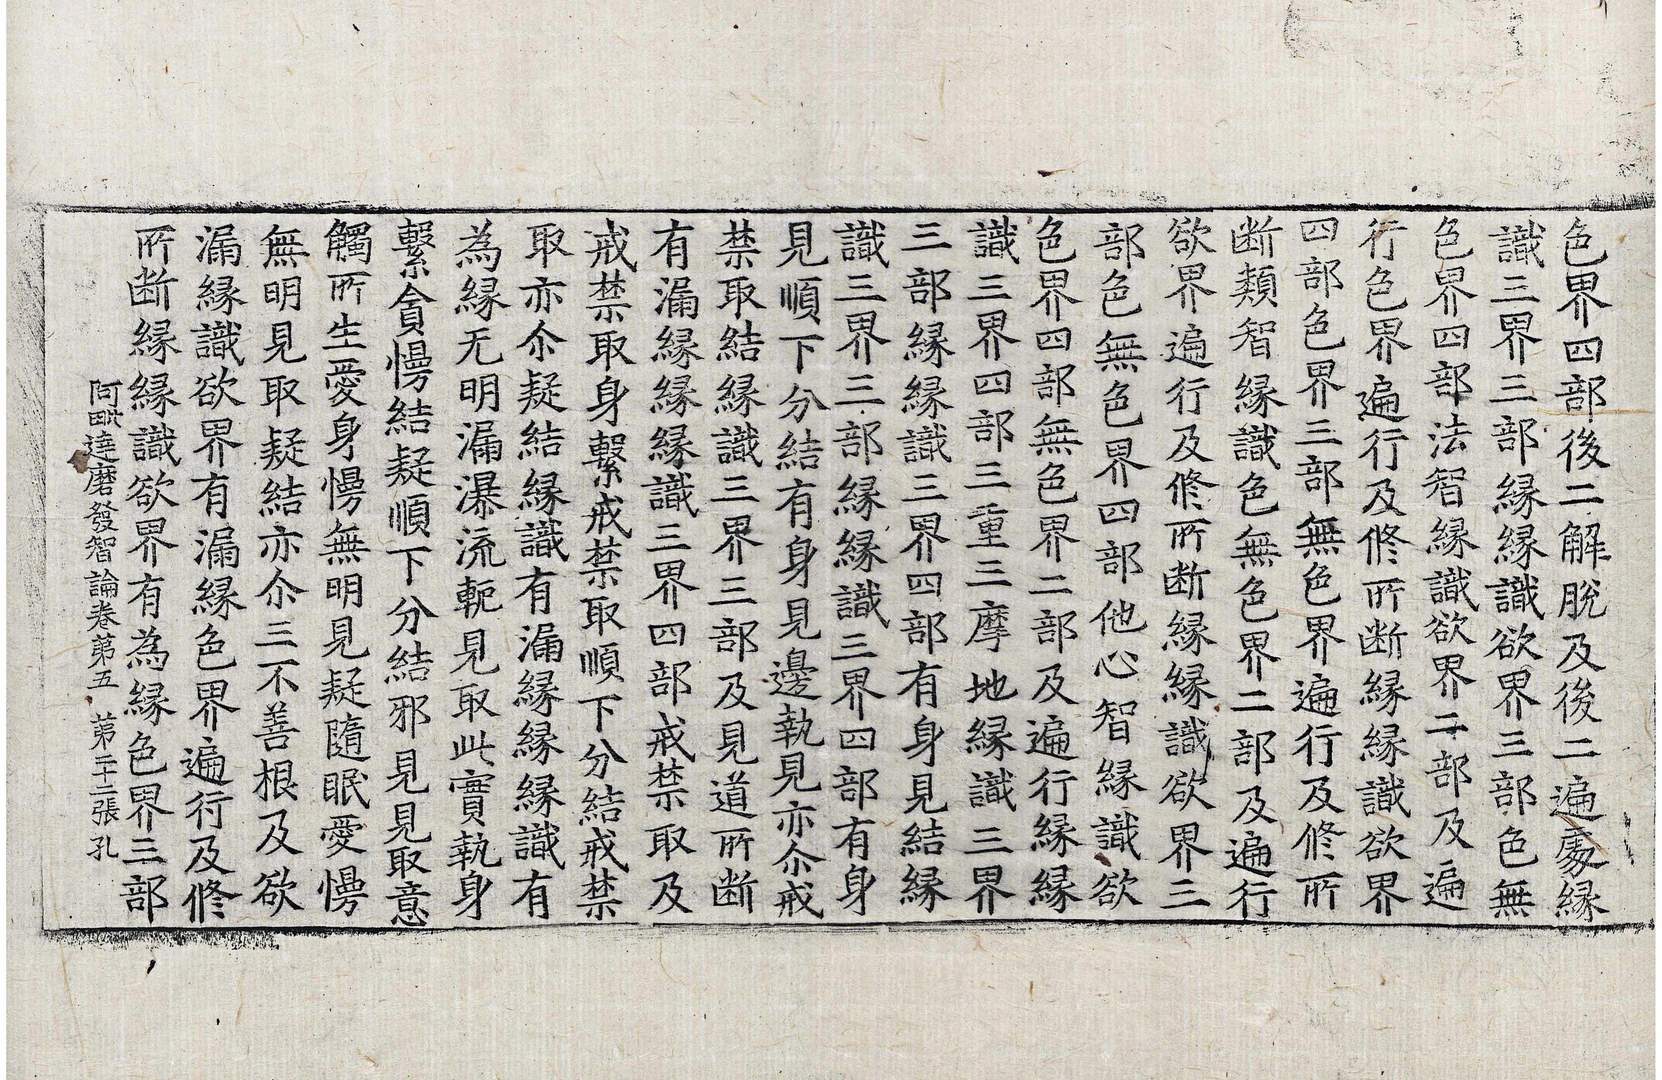 色界四部後二解脫及後二遍處縁
識三界三部縁縁識欲界三部色無
色界四部法智縁識欲界二部及遍
行色界遍行及修所断縁縁識欲界
四部色界三部無色界遍行及修所
断類智縁識色無色界二部及遍行
欲界遍行及修所断縁縁識欲界三
部色無色界四部他心智縁識欲
色界四部無色界二部及遍行縁縁
識三界四部三重三摩地縁識三界
三部縁縁識三界四部有身見結縁
識三界三部縁縁識三界四部有身
見順下分結有身見邊執見亦尒戒
禁取結縁識三界三部及見道所断
有漏縁縁縁識三界四部戒禁取及
戒禁取身繫戒禁取順下分結戒禁
取亦尒疑結縁識有漏縁縁縁識有
為縁无明漏瀑流軛見取此實執身
繫貪慢結疑順下分結邪見見取意
觸所生愛身慢無明見疑隨眠愛慢
無明見取疑結亦尒三不善根及欲
漏縁識欲界有漏縁色界遍行及修
所断縁縁識欲界有為縁色界三部
阿毗達磨發智論卷第五 第二十二張 孔